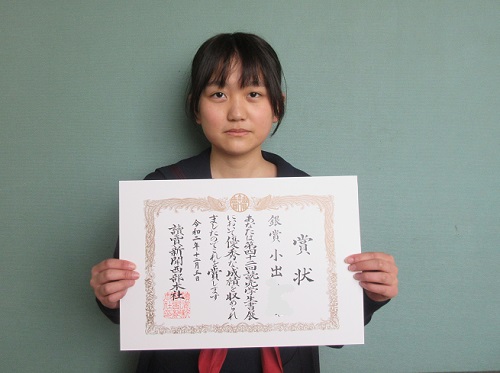 賞状
銀賞 小出
あなたは第四十二回読売学生書展
において優秀な成績を収められ
ましたのでこれを賞します
令和二年十二月二日
読売新聞西部本社